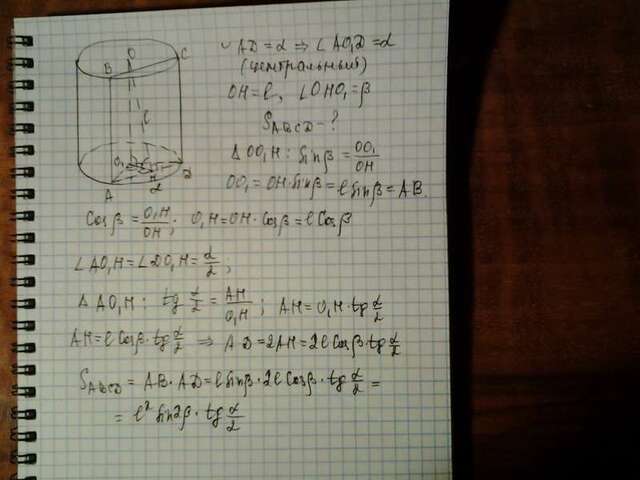 ∪ AD = α ⇒ ∠AO₁D = α
(центральный)
OH = ℓ, ∠OHO₁ = β
S_ABCD - ?
Δ OO₁H: sin β = OO₁/OH
OO₁ = OH · sin β = ℓ sin β = AB.
Cos β = O₁H/OH; O₁H = OH · Cos β = ℓ Cos β
∠AO₁H = ∠DO₁H = α/2;
Δ AO₁H: tg α/2 = AH/O₁H; AH = O₁H · tg α/2
AH = ℓ Cos β · tg α/2 ⇒ AD = 2AH = 2ℓ Cos β · tg α/2
S_ABCD = AB · AD = ℓ sin β · 2ℓ Cos β · tg α/2 =
= ℓ² sin 2β · tg α/2
O
B
C
ℓ
O₁
H
α
A